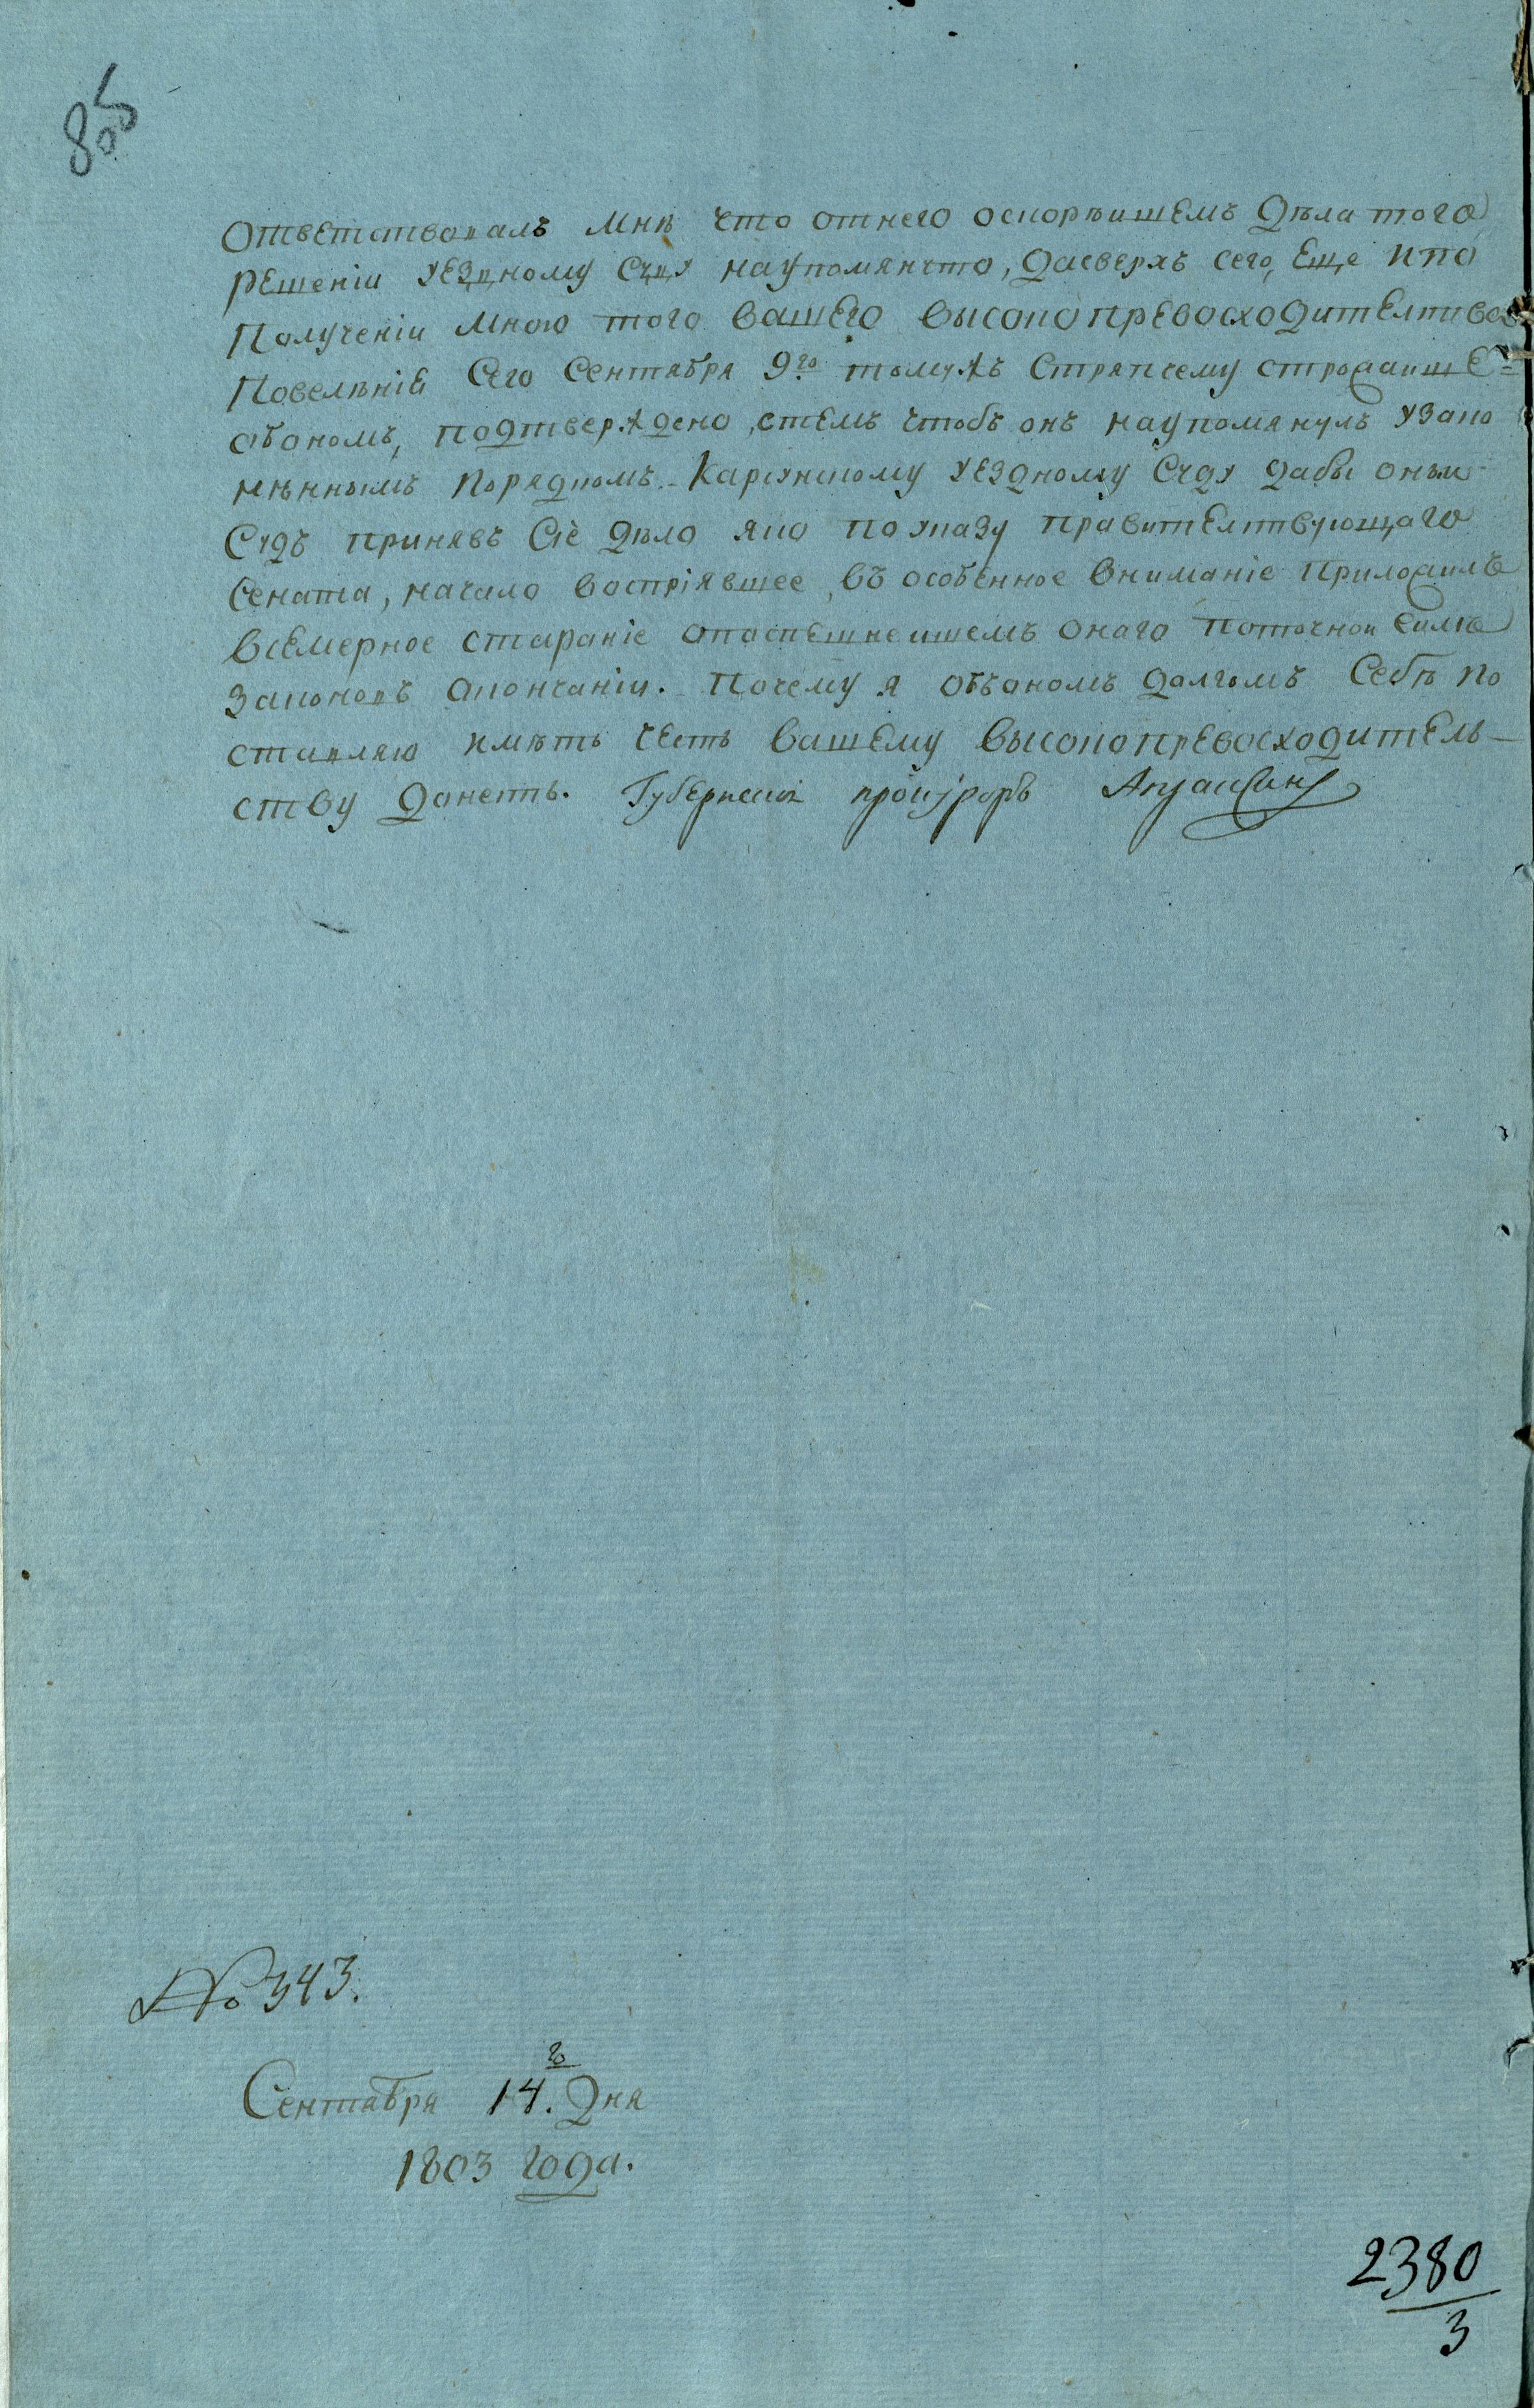 85
отвѣтствовалъ мнѣ что отнего оскорѣйшемъ дѣла того
решеніи уездному суду напомянуто, дасверхъ сего, еще ипо
полученіи мною того вашего высокопревосходителства
повелѣніе сего сентября 9го томужъ стряпчему строжайше=
обономъ, подтверждено, стемъ чтобъ онъ напомянулъ узако
нѣннымъ порядкомъ уездному суду дабы оный
судъ принявъ сіе дѣло яко поуказу правителствующаго
сената, начало воспріявшее, въ особенное вниманіе приложилъ
всемерное стараніе опоспешнейшемъ онаго поточной силе
законовъ окончаніи. Почему я объономъ долгомъ себѣ по
ставляю имѣть честь вашему высокопревосходитель-
ству донесть. Губернскій прокуроръ
№ 343.
Сентября 14.го дня
1803 года.
2380
3